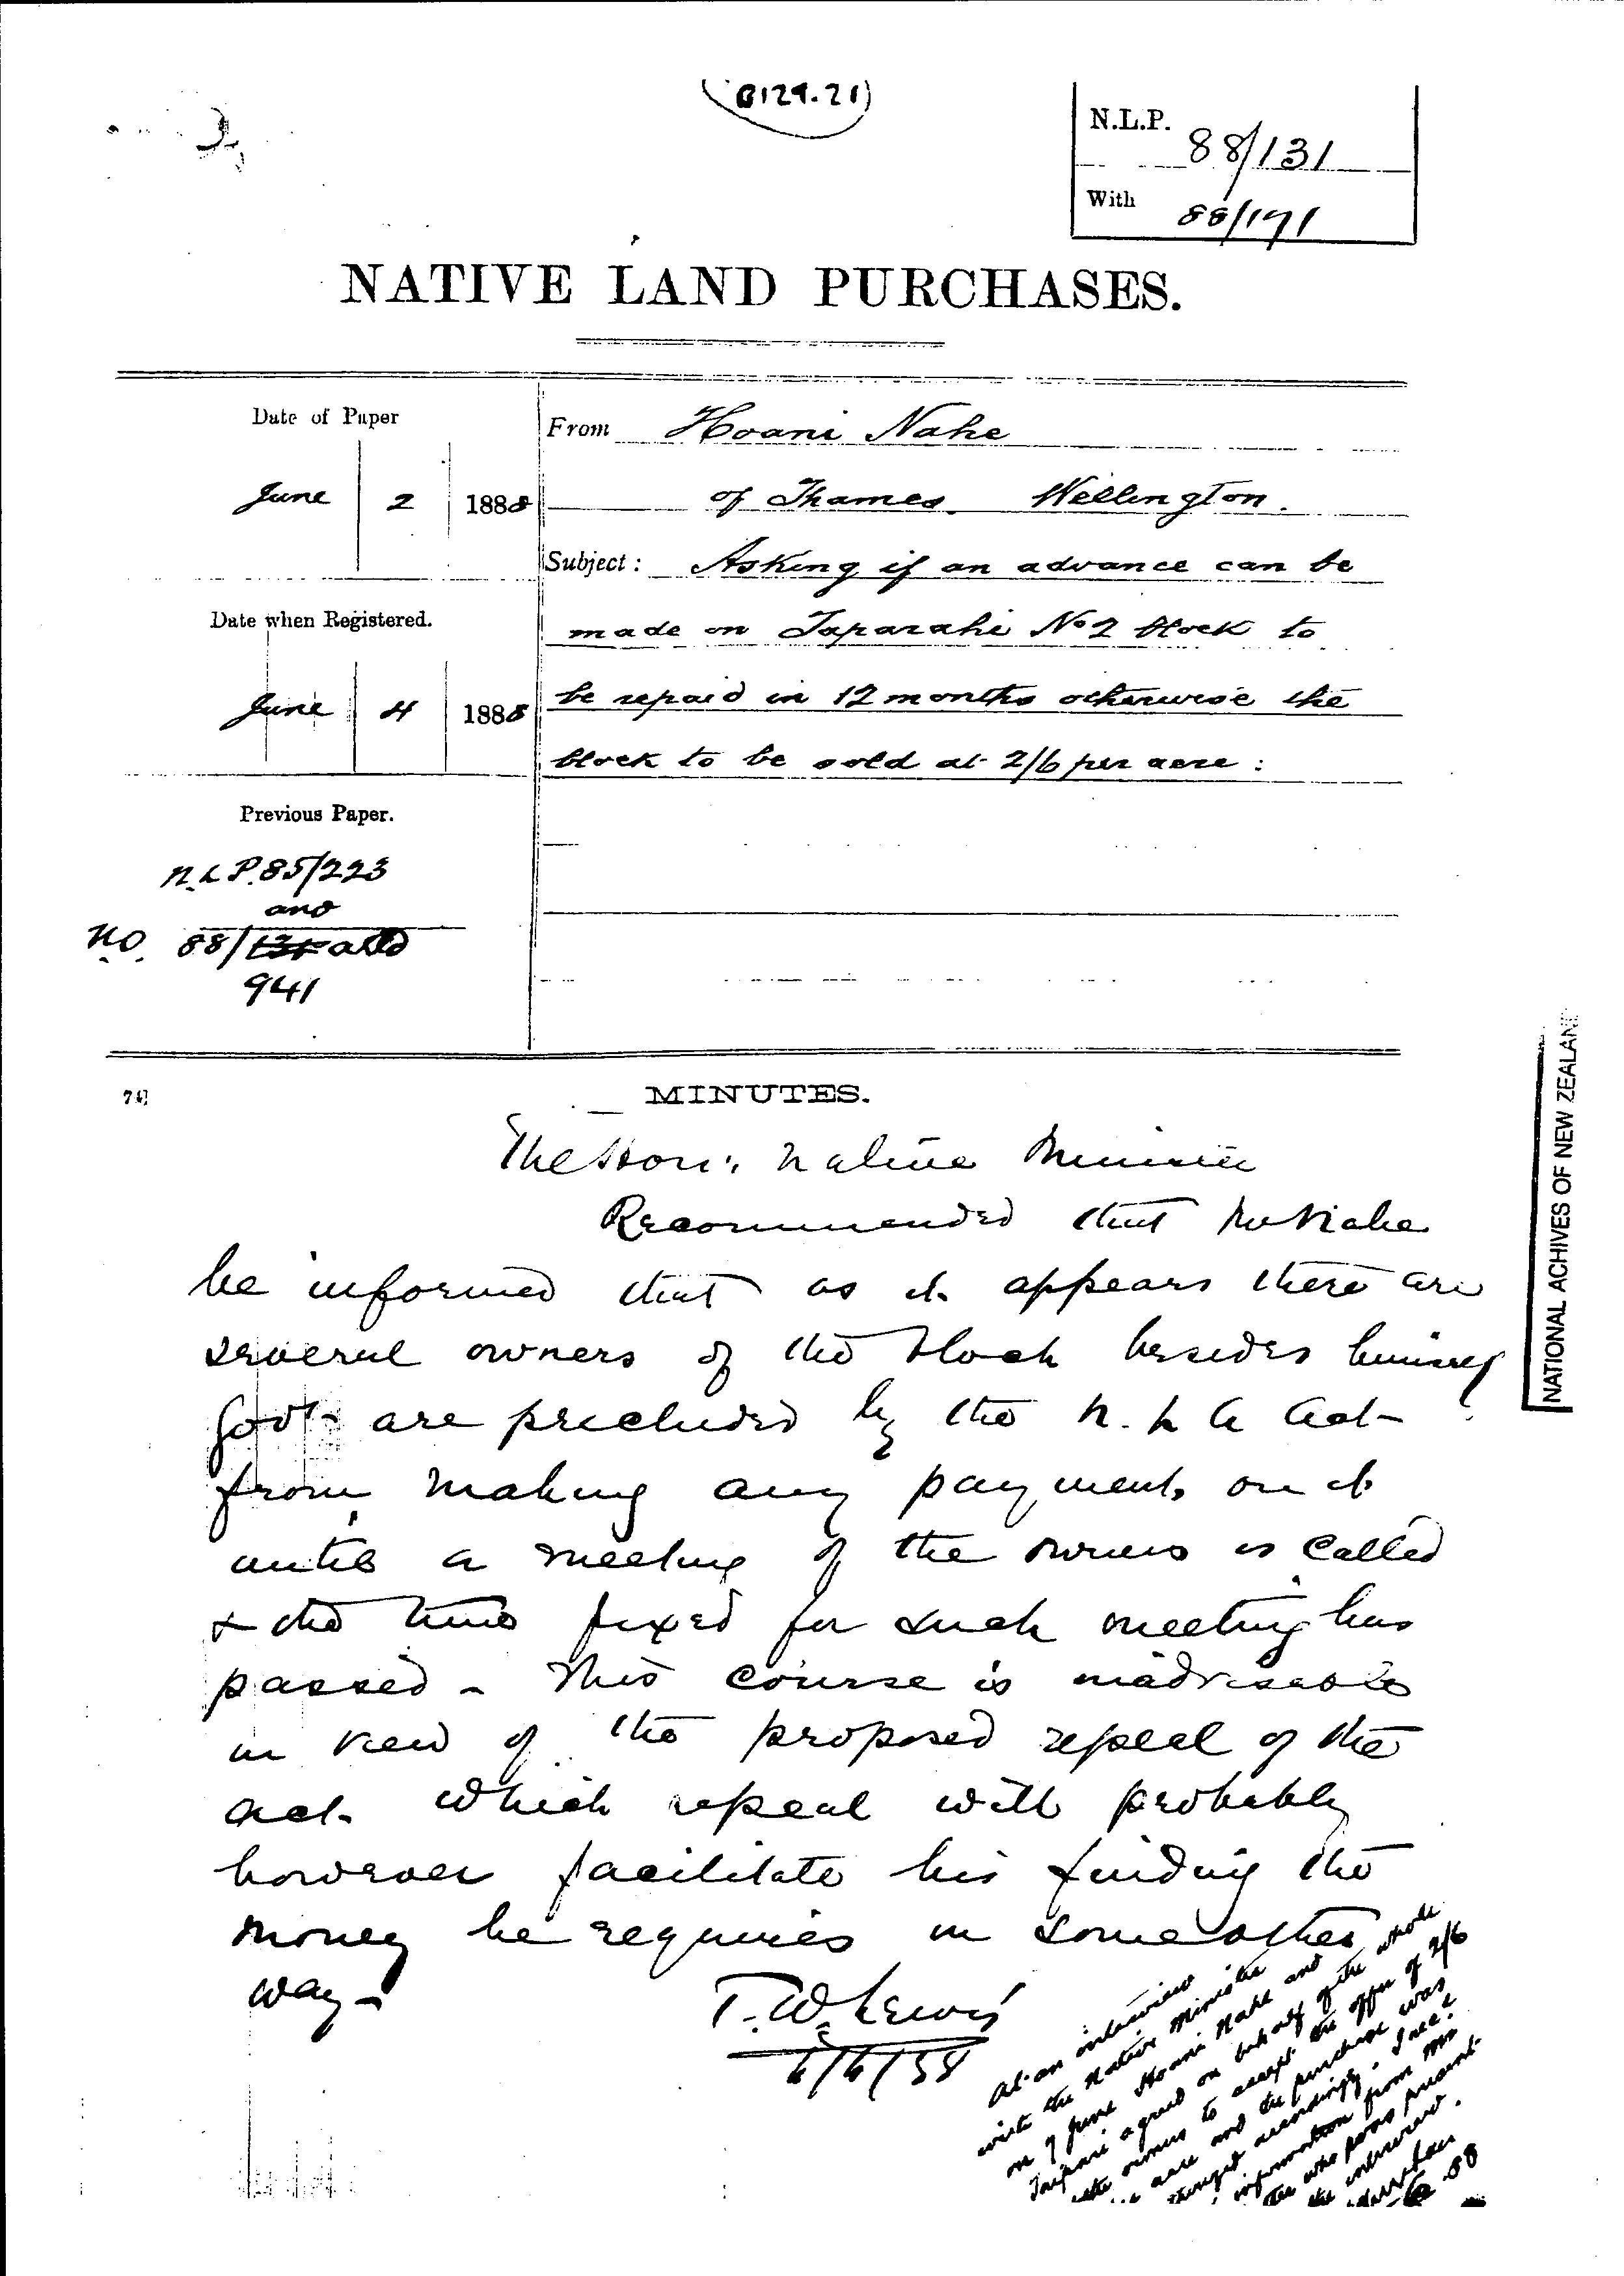 (B129.21)
N.L.P. 88/131
With 88/191
NATIVE LAND PURCHASES.
Date of Paper
June 2 1888
Date when Registered.
June 4 1888
Previous Paper.
N.L.P. 85/223
and
N.O. 88/131 and
941
From Hoani Nahe
of Thames. Wellington.
Subject: Asking if an advance can be
made on Taparahi No 2 block to
be repaid in 12 months otherwise the
block to be sold at 2/6 per acre:
MINUTES.
The Hon: Native Minister
Recommended that Mr Nahe
be informed that as it appears there are
several owners of the block besides himself
Govt are precluded by the N. L A Act
from making any payments on it
until a meeting of the owners is called
& the time fixed for such meeting has
passed – This course is inadvisable
in view of the proposed repeal of the
act which repeal will probably
however facilitate his finding the
money he requires in some other
way –
T.W. Lewis
6/6/88
At an interview
with the Native Minister
on 7 June Hoani Nahe and
Taipari agreed on behalf of the whole
the owners to accept the offer of 2/6
acre and the purchase was
accordingly.
information from Mr
who was present
the interview.
88
NATIONAL ACHIVES OF NEW ZEALAND